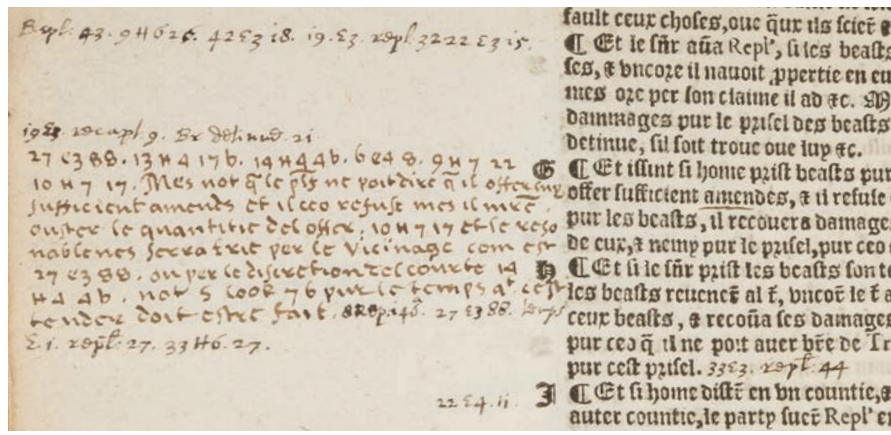 Repl. 43. 9 H 6 26. 42 E 3 18. 19. E 3. repl. 32 22 E 3 15.
19 E 3 recapl. 9. Br detinue. 21
27 E 3 88. 13 H 4 17 b. 14 H 4 4 b. 6 E 4 8. 9 H 7 22
10 H 7 17. Mes not q̄ le pl̄ ne poit dire q̄ il offer
sufficient amends et il ceo refuse mes il
ouster le quantitie del offer. 10 H 7 17 et le reso
nablenes serra trie per le Vicinage com est
27 E 3 88. ou per le discretion del courte 14
H 4 4 b. not 5 Cook 76 pur le temps
tender doit estre fait. 8 Rep. 146. 27 E 3 88. temps
E. 1. repl̄. 27. 33 H 6. 27.
22 E 4. 11.
fault ceux choses, oue
¶ Et le sn̄r aũa Repl', si les beasts
ses, & vncore il nauoit ꝓpertie en eu
mes ore per son claime il ad &c.
dammages pur le prisel des beasts
detinue, sil soit troue oue luy &c.
G ¶ Et issint si home prist beasts pur
offer sufficient amendes, & il refuse
pur les beasts, il recouera damage
de eux, & nemy pur le prisel, pur ceo
H ¶ Et si le sn̄r prist les beasts son te
les beasts reuenēt al t̄, vncor̄ le t̄
ceux beasts, & recoũa ses damages
pur ceo q̄ il ne poit auer br̄e de Tr
pur cest prisel. 33 E 3. repl̄. 44
I ¶ Et si home distr̄ en vn countie, &
auter countie, le party suer̄ Repl' en